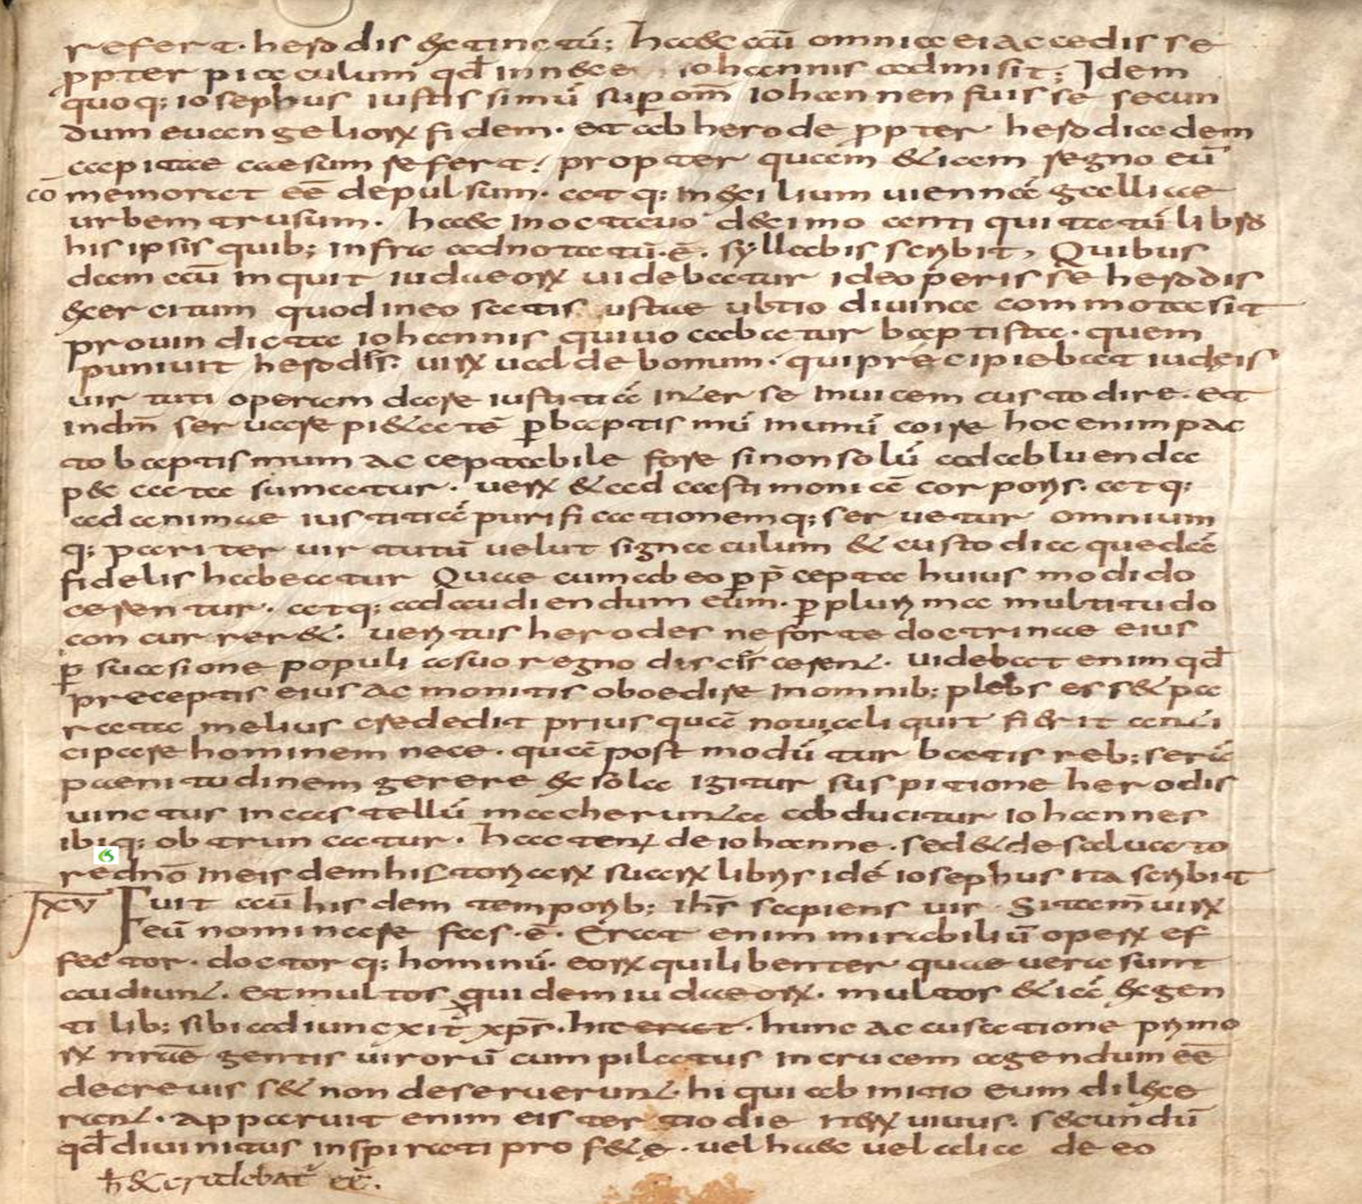 refert. herodis extinctū; haec cū omnia ei accedisse
ꝓpter piaculum qđ in nece iohannis admisit; Idem
quoq; iosephus iustissimū sup om̄ iohannen fuisse secun
dum euangeliorꝝ fidem. et ab herode ꝓpter herodiadem
capitae caesum refert. propter quam & iam regno eū
cō memorat eē depulsum. atq; in exilium uiennā galliae
urbem trusum. haec in octauo decimo antiquitatū libro
his ipsis quib; infra adnotatū .ē. syllabis scribit, Quibus
dam aū inquit iudaeorꝝ uidebatur ideo perisse herodis
exercitum quod in eo satis iustae ultio diuina commota sit
pro uindicta iohannis qui uocabatur baptista. quem
puniuit herodis. uirꝝ ualde bonum. qui precipiebat iudęis
uirtuti operam dare iustitiā inter se inuicem custodire. et
in dm̄ seruare pi&atē ꝑ baptismū in unū coire hoc enim pac
to baptismum acceptabile fore si non solū ad abluenda
peccata sumatur. uerꝝ & ad castimoniā corporis. atq;
ad animae iustitiā purificationemq; seruetur omnium
q; pariter uirtutū uelut signaculum & custodia quedā
fidelis habeatur Quae cum ab eo ꝑ p̄cepta huiusmodi do
cerentur. atq; ad audiendum eum. ꝑ plurima multitudo
concurrer&. ueritus herodes ne forte doctrinae eius
ꝑ suasione populi a suo regno discis̄cerent. uidebat enim qđ
preceptis eius ac monitis oboedire in omnib; plebs ess& pa
rata melius credidit prius quā noui aliquit fi&rit anti
cipare hominem nece. quā post modū turbatis reb; serā
paenitudinem gerere ex sola igitur suspitione herodis
uinctus in castellū macherunta abducitur iohannes
ibiq; obtruncatur. hactenꝰ de iohanne. sed & de saluato
re dn̄o in eisdem historiarꝝ suarꝝ libris idē iosephus ita scribit
XV Fuit aū hisdem temporib; ih̄s sapiens uir. Si tam̄ uirꝝ
eū nominare fas .ē. Erat enim mirabiliū operꝝ ef
fector. doctorq; hominū. eorꝝ qui libenter quae uera sunt
audiunt. et multos quidem iudaeorꝝ. multos & iā ex gen
tilib; sibi adiuncxit xp̄s. hic erat. hunc accusatione primo
rꝝ nr̄ae gentis uirorū cum pilatus in crucem agendum eē
decreuiss& non deseruerunt hi qui ab initio eum dilexe
rant. apparuit enim eis tertio die iterꝝ uiuus. secundū
qđ diuinitus inspirati prof&ę. uel haec uel alia de eo
ħ & credebat̄ eē.